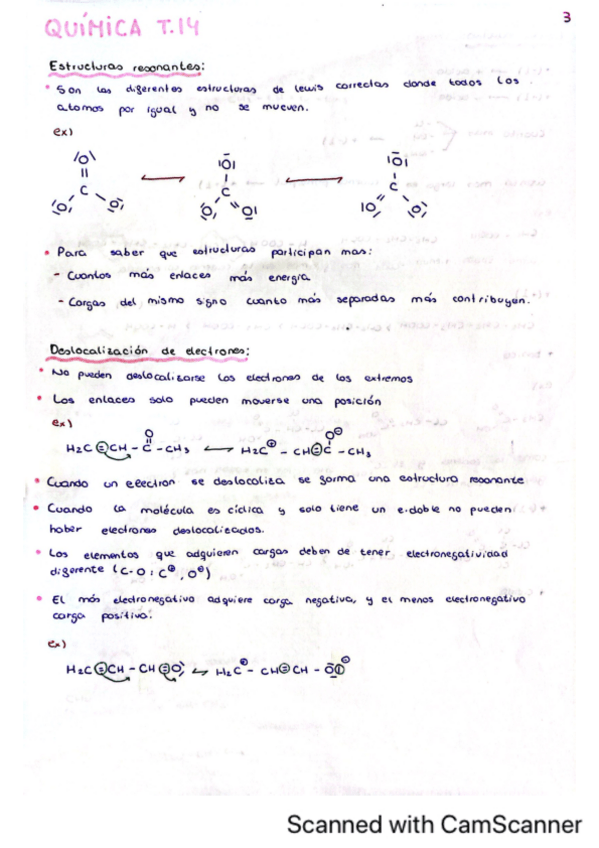 3
QUÍMICA T.14
Estructuras resonantes:
• Son las diferentes estructuras de lewis correctas donde todos los
atomos por igual y no se mueven.
ex)
• Para saber que estructuras participan mas:
- Cuantos más enlaces más energía
- Cargas del mismo signo cuanto más separadas más contribuyen.
Deslocalización de electrones:
• No pueden deslocalizarse los electrones de los extremos
• Los enlaces solo pueden moverse una posición
ex)
H₂C=CH - C - CH₃ ⟷ H₂C⊕ - CH=C - CH₃
• Cuando un electron se deslocaliza se forma una estructura resonante
• Cuando la molécula es cíclica y solo tiene un e.doble no pueden
haber electrones deslocalizados.
• Los elementos que adquieren cargas deben de tener electronegatividad
diferente (C-O : C⊕, O⊖)
• El más electronegativo adquiere carga negativa, y el menos electronegativo
carga positiva.
ex)
H₂C=CH - CH=O ⟷ H₂C⊕ - CH=CH - O⊖
Scanned with CamScanner